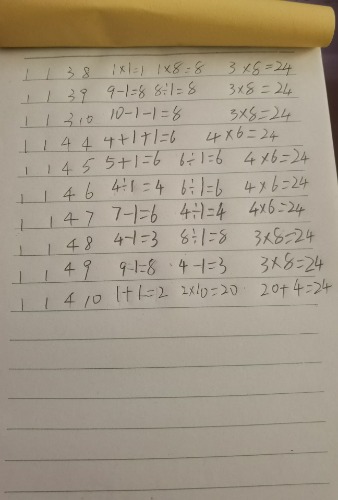 1 1 3 8 1×1=1 1×8=8 3×8=24
1 1 3 9 9-1=8 8÷1=8 3×8=24
1 1 3 10 10-1-1=8 3×8=24
1 1 4 4 4+1+1=6 4×6=24
1 1 4 5 5+1=6 6÷1=6 4×6=24
1 1 4 6 4÷1=4 6÷1=6 4×6=24
1 1 4 7 7-1=6 4÷1=4 4×6=24
1 1 4 8 4-1=3 8÷1=8 3×8=24
1 1 4 9 9-1=8 4-1=3 3×8=24
1 1 4 10 1+1=2 2×10=20 20+4=24